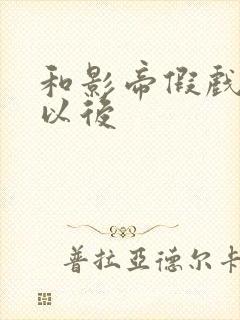 和影帝假戲
以後
普拉亞德尔卡